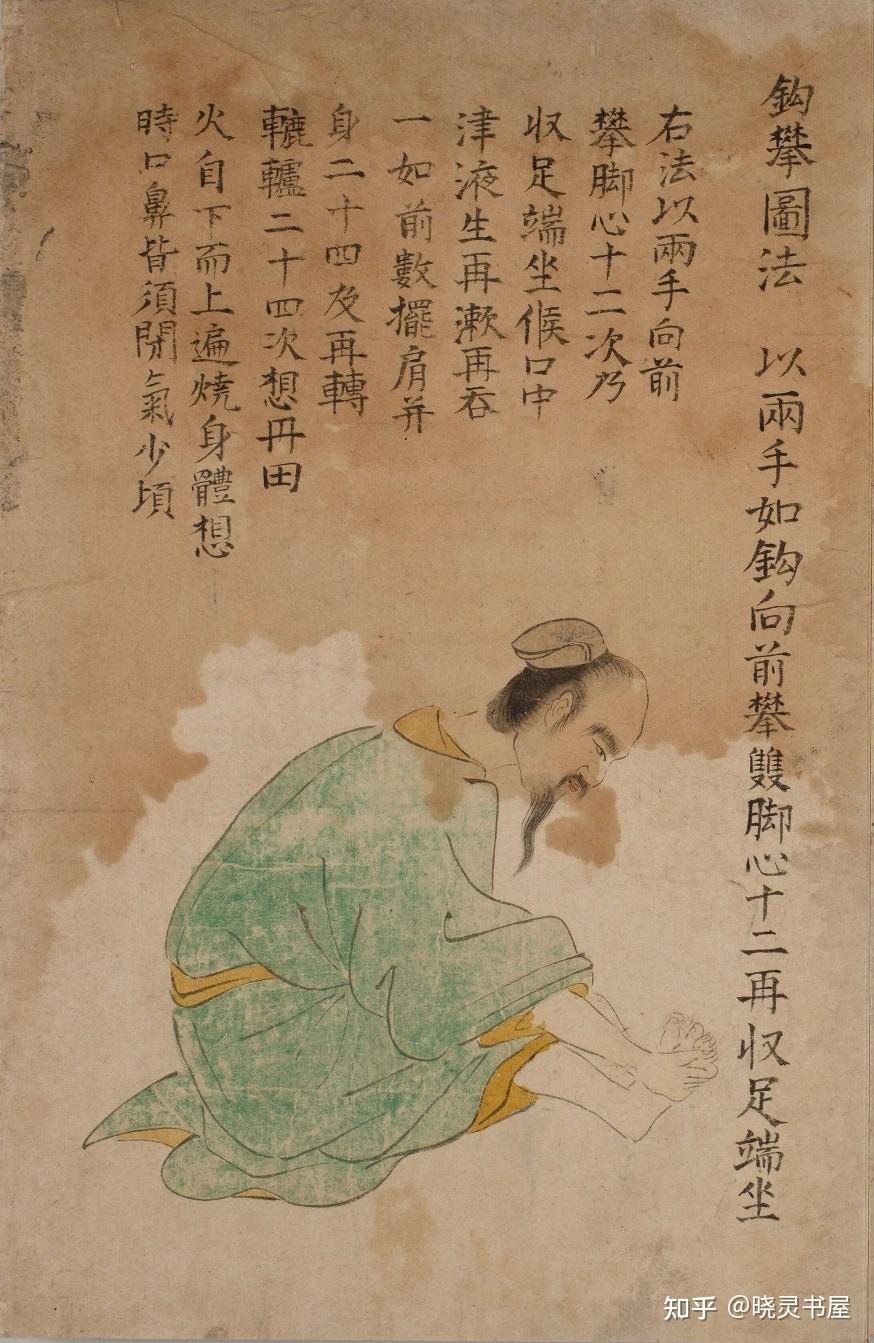 鈎攀圖法 以兩手如鈎向前攀雙脚心十二再収足端坐
右法以兩手向前
攀脚心十二次乃
収足端坐候口中
津液生再漱再吞
一如前數擺肩并
身二十四及再轉
轆轤二十四次想丹田
火自下而上遍燒身體想
時口鼻皆須閉氣少頃
知乎 @晓灵书屋